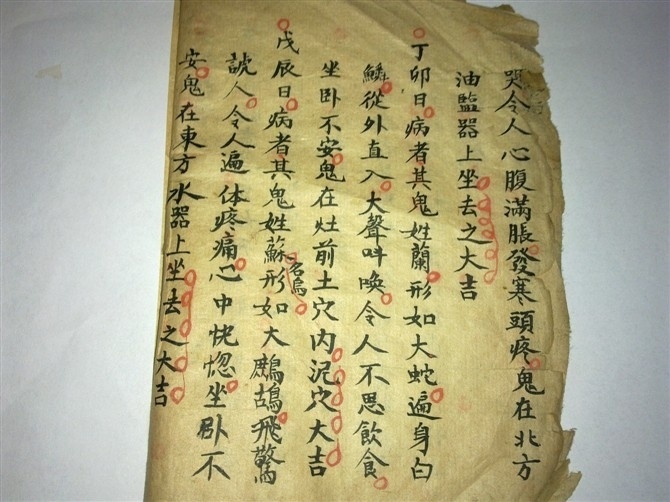 哭令人心腹滿脹發寒頭疼鬼在北方
油監器上坐去之大吉
丁卯日病者其鬼姓蘭形如大蛇遍身白
鱗從外直入大聲呌喚令人不思飲食
坐卧不安鬼在灶前土穴内泥穴大吉
戊辰日病者其鬼姓蘇名烏形如大鷓鴣飛驚
諕人令人遍体疼痛心中恍惚坐卧不
安鬼在東方水器上坐去之大吉